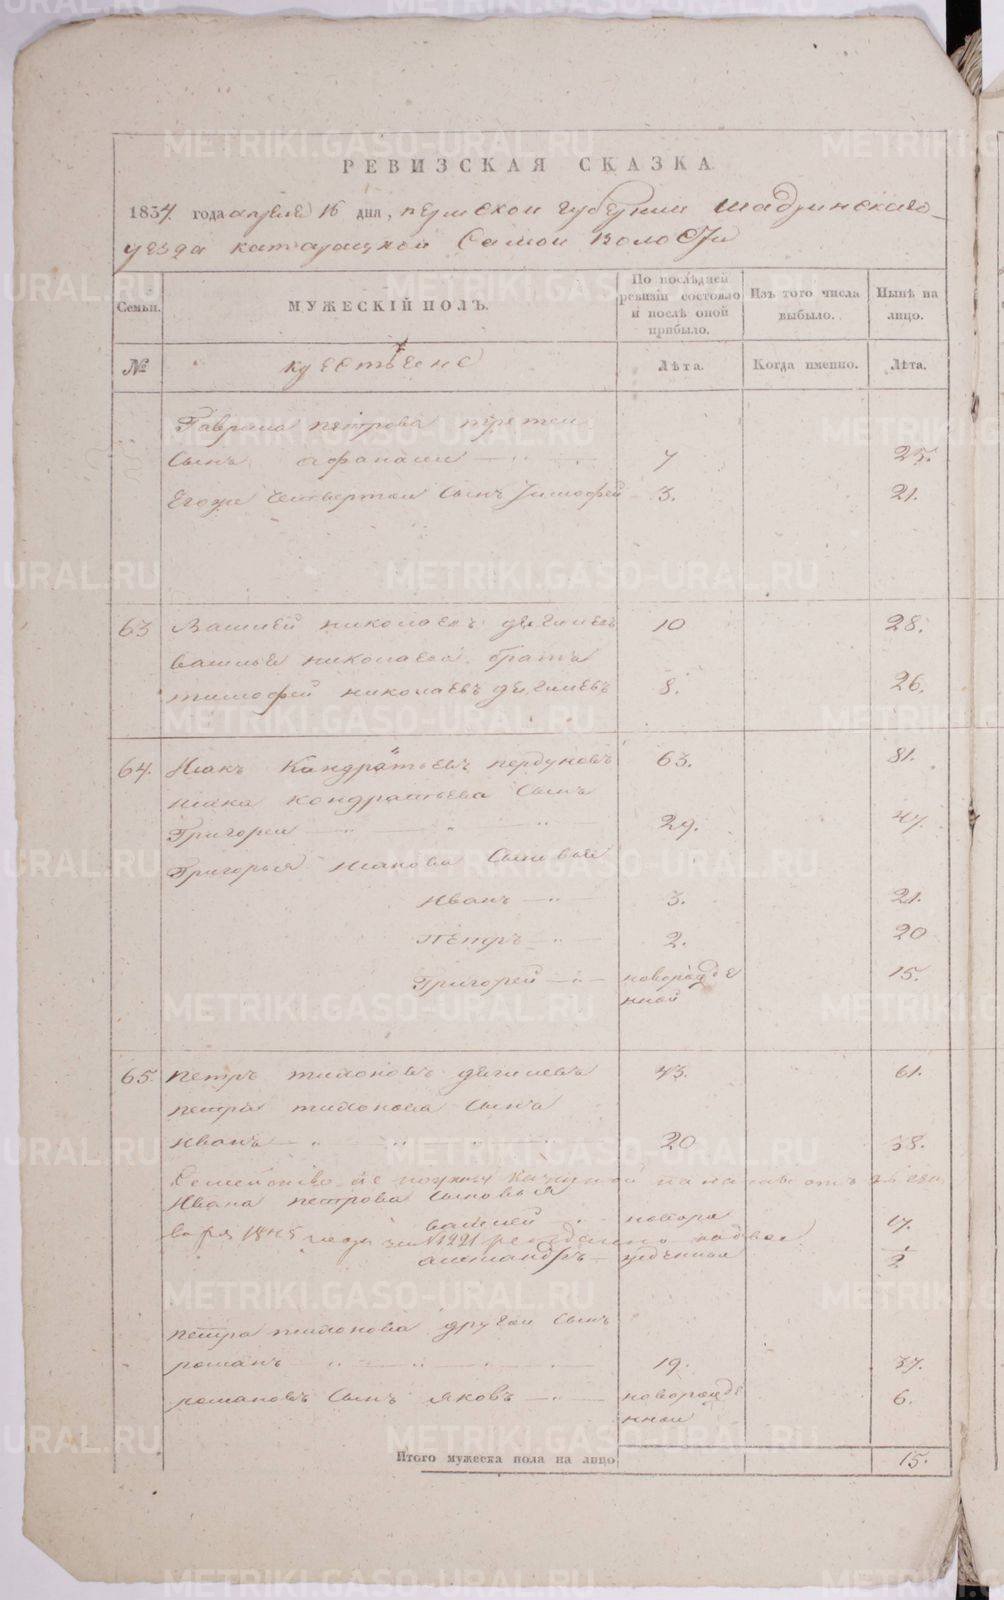 METRIKI.GASO-URAL.RU
РЕВИЗСКАЯ СКАЗКА.
1834 года апреля 16 дня, пермской губернии шадринскаго
уезда катайцкой самой волости
Семьи.
МУЖЕСКІЙ ПОЛЪ.
По послѣдней ревизіи состояло и послѣ оной прибыло.
Изъ того числа выбыло.
Нынѣ на лицо.
№
крестьене
Лѣта.
Когда именно.
Лѣта.
Гаврила петрова третеи
Сынъ афанасеи 7 25.
Егоже четвертои Сынъ Тимофей 3. 21.
63 Василей николаевъ 10 28.
василья николаева братъ
тимофей николаевъ 8. 26.
64. Исакъ Кондратьевъ пердуновъ 63. 81.
исака кондратьева Сынъ
Григореи 29. 47.
Григорья исакова Сыновья
Иванъ 3. 21.
Петръ 2. 20
Григорей новорожде 15.
нной
65. петръ тихоновъ 43. 61.
петра тихонова Сынъ
Иванъ 20 38.
Семейство
Ивана петрова Сыновья
василей новоро 17.
1845 года за № 1221
александръ жденныя 2
петра тихонова другои Сынъ
романъ 19. 37.
романовъ Сынъ яковъ новорожде 6.
ннои
Итого мужеска пола на лицо 15.